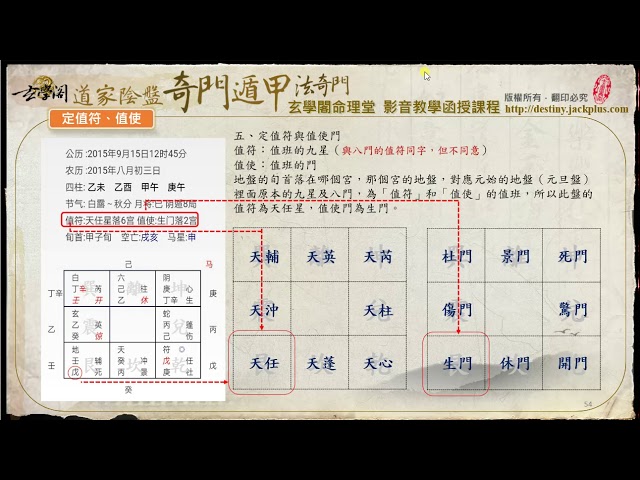 玄學閣 道家陰盤 奇門遁甲 法奇門
版權所有，翻印必究
玄學閣命理堂 影音教學函授課程 http://destiny.jackplus.com
定值符、值使
公历:2015年9月15日12时45分
农历:2015年八月初三日
四柱:乙未 乙酉 甲午 庚午
节气:白露~秋分 月将:巳 阴遁8局
值符:天任星落6宫 值使:生门落2宫
旬首:甲子旬 空亡:戌亥 马星:申
五、定值符與值使門
值符：值班的九星（與八門的值符同字，但不同意）
值使：值班的門
地盤的旬首落在哪個宮，那個宮的地盤，對應元始的地盤（元旦盤）
裡面原本的九星及八門，為「值符」和「值使」的值班，所以此盤的
值符為天任星，值使門為生門。
己 马
白 六 阴
丁辛 丁辛 芮 己 柱 庚 心 庚
壬 开 乙 休 丁辛 生
玄 蛇
乙 乙 英 丁辛 蓬 丙
癸 惊 己 伤
地 天 符
壬 壬 辅 癸 冲 戊 任 戊
戊 死 丙 景 庚 杜
癸
天輔 天英 天芮
天沖 天柱
天任 天蓬 天心
杜門 景門 死門
傷門 驚門
生門 休門 開門
54